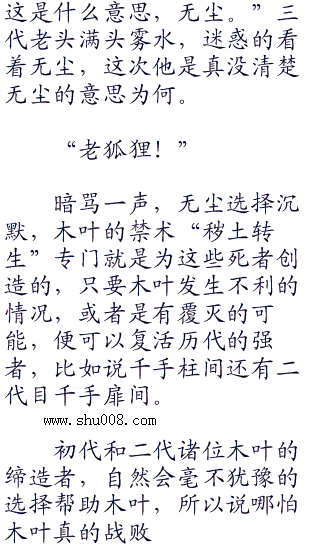 这是什么意思，无尘。”三
代老头满头雾水，迷惑的看
着无尘，这次他是真没清楚
无尘的意思为何。
“老狐狸！”
暗骂一声，无尘选择沉
默，木叶的禁术“秽土转
生”专门就是为这些死者创
造的，只要木叶发生不利的
情况，或者是有覆灭的可
能，便可以复活历代的强
者，比如说千手柱间还有二
代目千手扉间。
www.shu008.com
初代和二代诸位木叶的
缔造者，自然会毫不犹豫的
选择帮助木叶，所以说哪怕
木叶真的战败